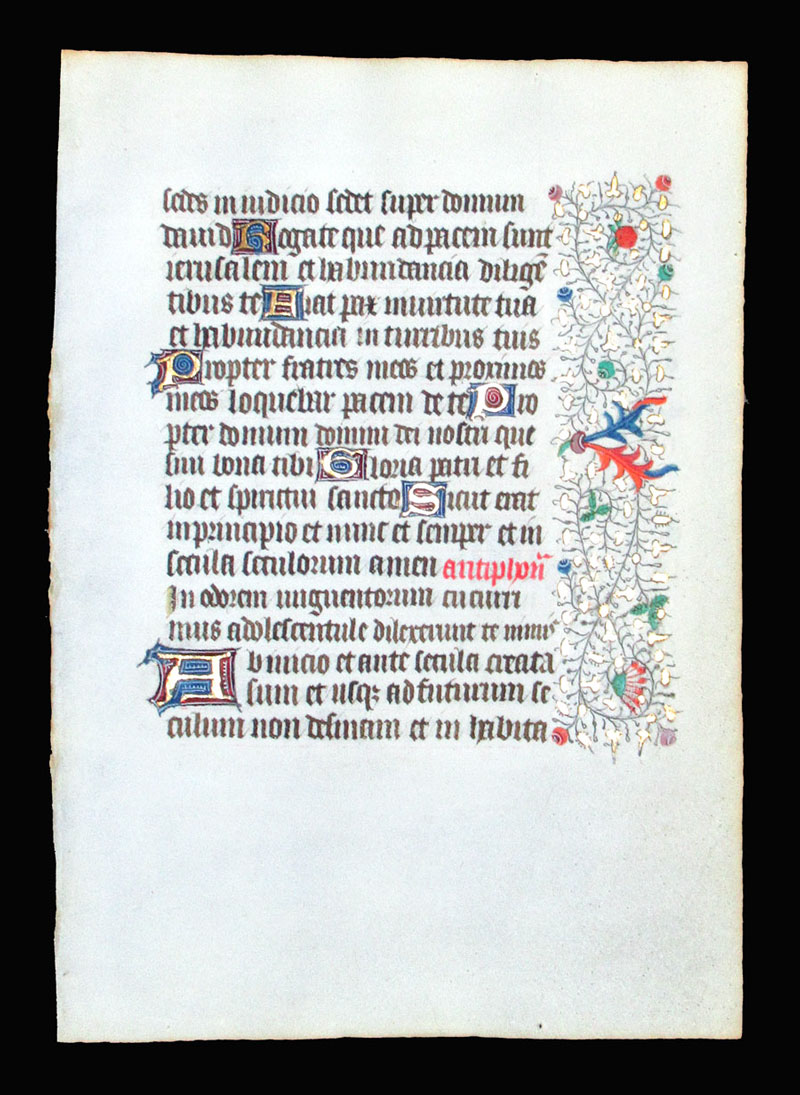 sedes in iudicio sedet super domum
dauid Rogate que ad pacem sunt
ierusalem et habundancia diligē
tibus te Fiat pax in uirtute tua
et habundancia in turribus tuis
Propter fratres meos et proximos
meos loquebar pacem de te Pro
pter domum domini dei nostri que
siui bona tibi Gloria patri et fi
lio et spiritui sancto Sicut erat
in principio et nunc et semper et in
secula seculorum amen antiphon̄
In odorem unguentorum cucurri
mus adolescentule dilexerunt te nimis
Ab inicio et ante secula creata
sum et usqȝ ad futurum se
culum non desinam et in habita